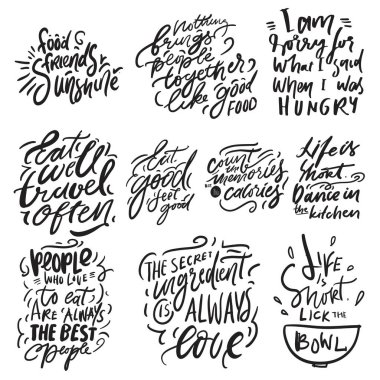 food
friends
Sunshine
nothing
brings
people
together
like good
FOOD
I am
sorry for
what I said
when I was
HUNGRY
Eat
well
travel
often
Eat
good
feel
good
count
the
memories
not
calories
Life is
short.
Dance in
the kitchen
PEOPLE
WHO LOVE
to eat
ARE ALWAYS
THE BEST
people
THE SECRET
ingredient
IS
ALWAYS
love
LIFE
is
Short.
LICK THE
BOWL